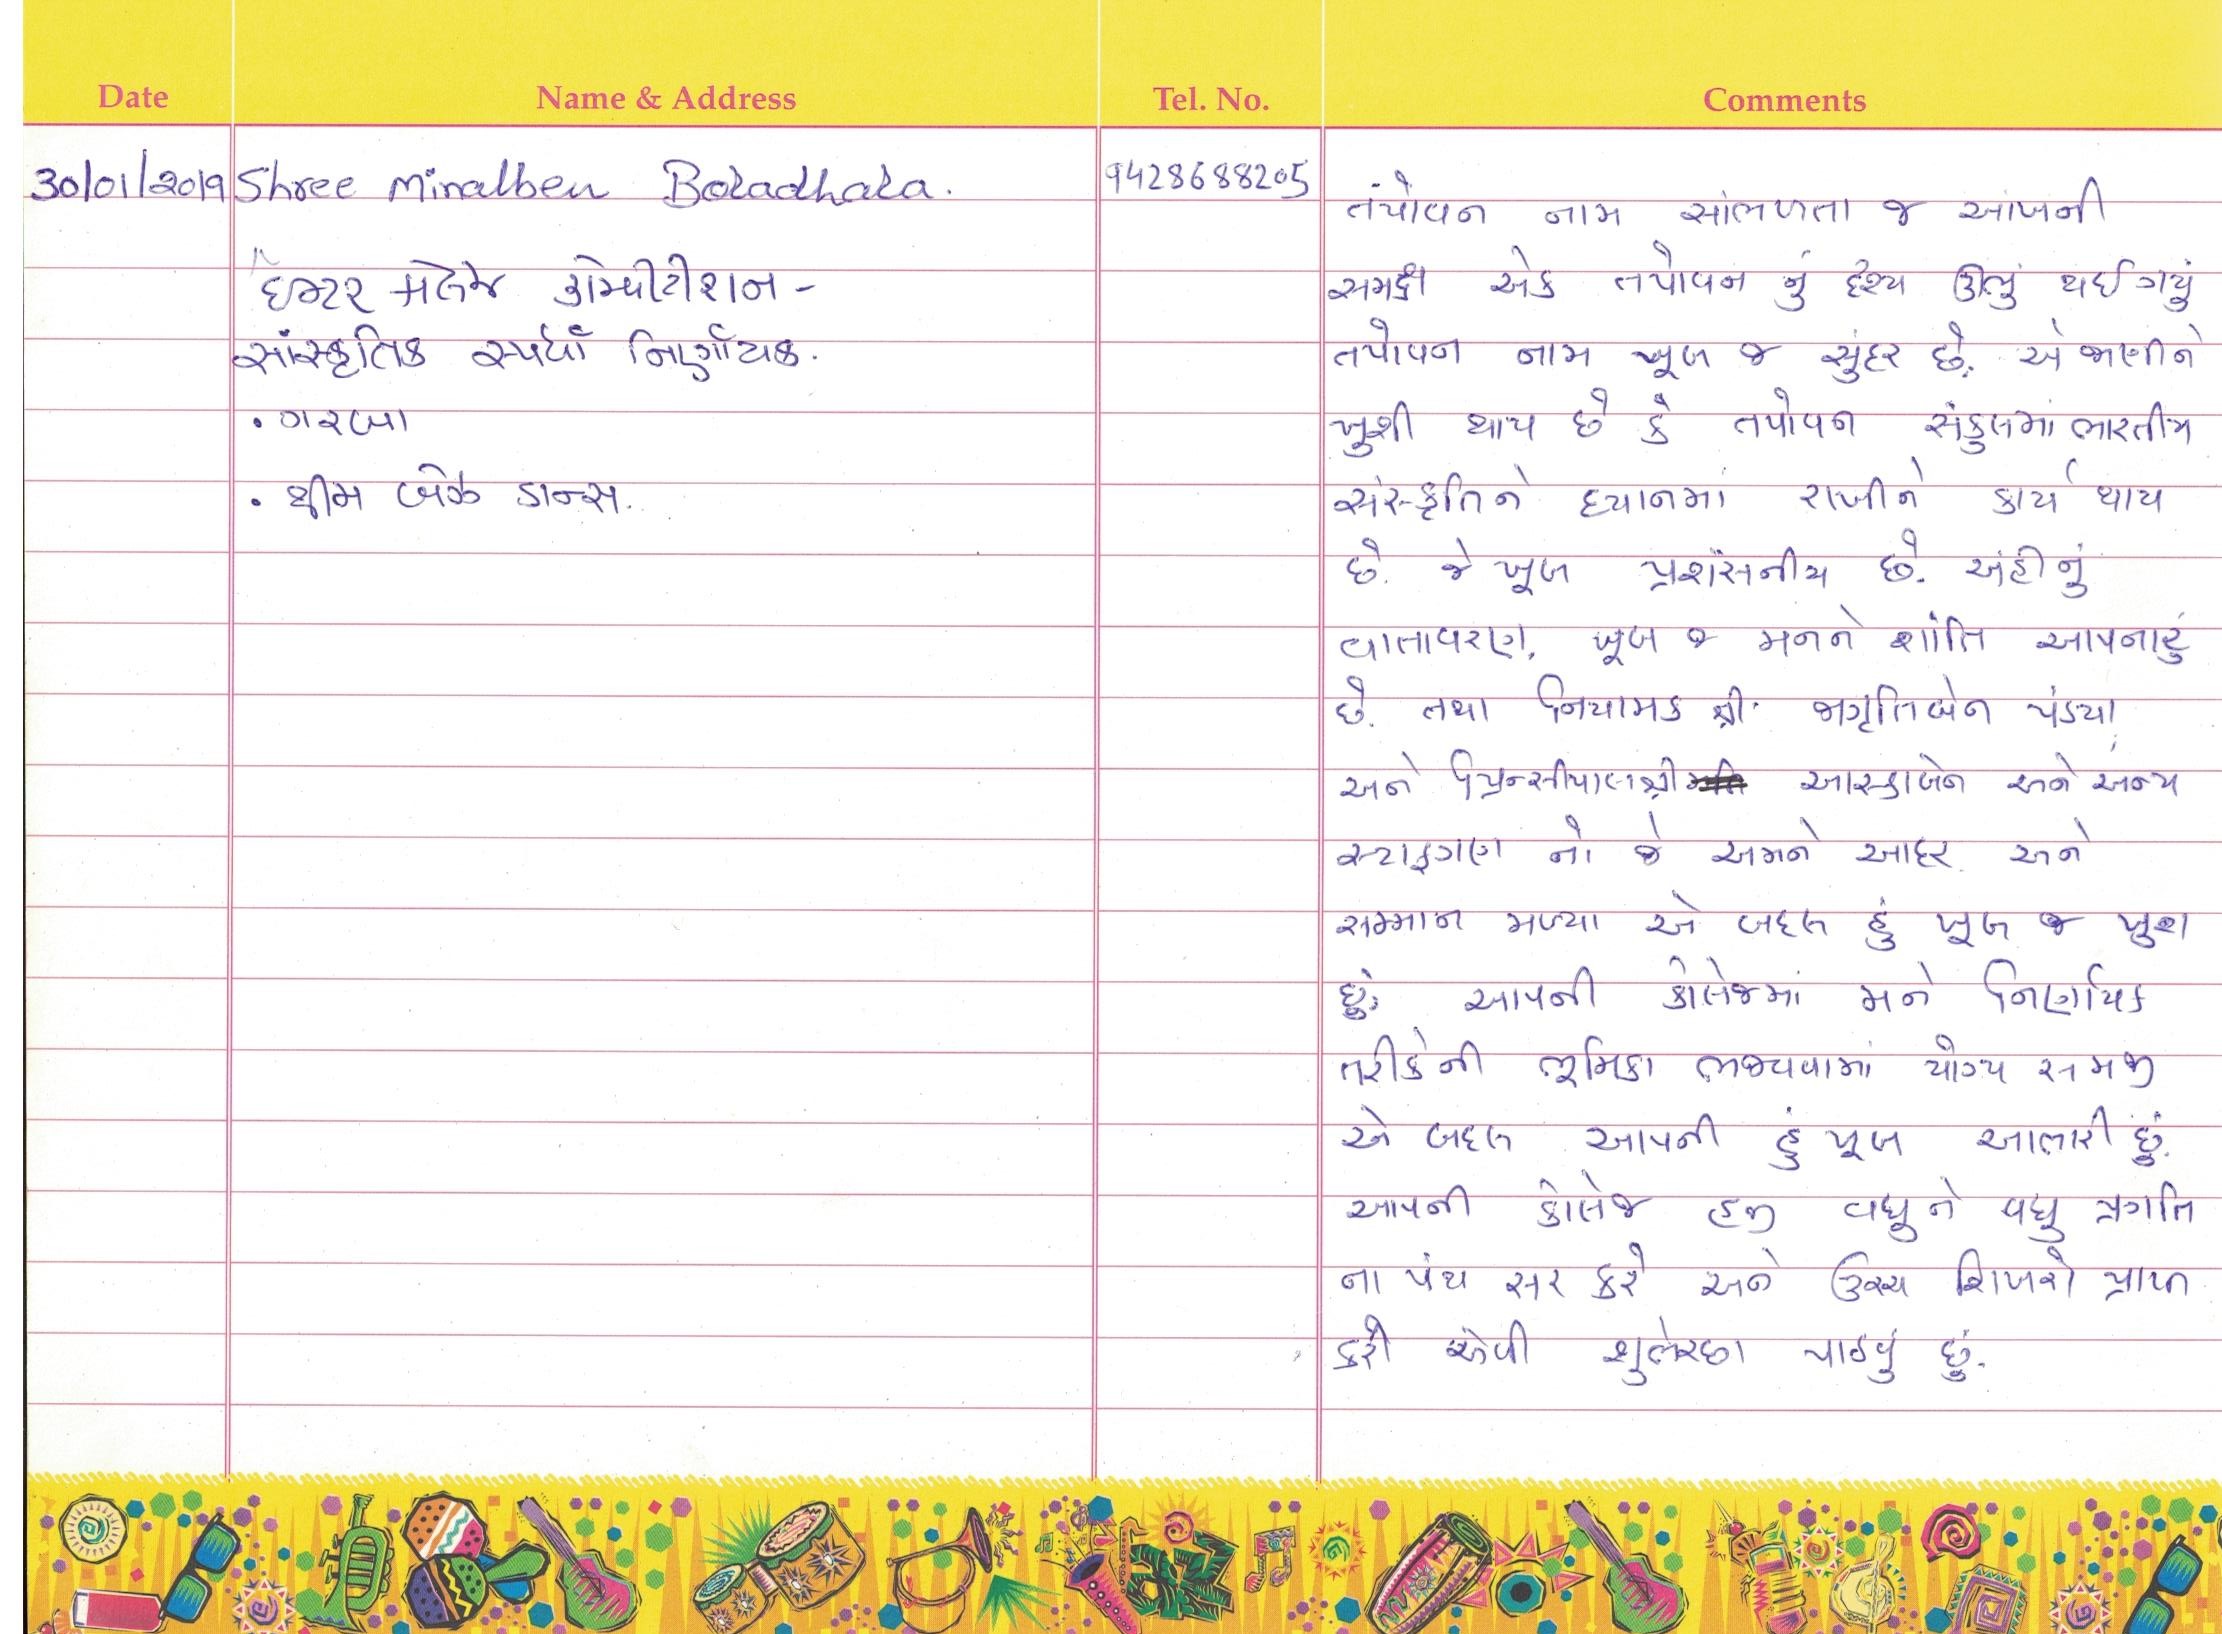 Date Name & Address Tel. No. Comments
30/01/2019 Shree Minalben Boradhara. 9428688205
ઇન્ટર કોલેજ કોમ્પીટીશન -
સાંસ્કૃતિક સ્પર્ધા નિર્ણાયક.
• ગરબા
• થીમ બેઝ ડાન્સ.
તપોવન નામ સાંભળતા જ આંખની
સમક્ષ એક તપોવન નું દ્રશ્ય ઊભું થઈ ગયું
તપોવન નામ ખૂબ જ સુંદર છે. એ જાણીને
ખુશી થાય છે કે તપોવન સંકુલમાં ભારતીય
સંસ્કૃતિને ધ્યાનમાં રાખીને કાર્ય થાય
છે. જે ખૂબ પ્રશંસનીય છે. અહીંનું
વાતાવરણ, ખૂબ જ મનને શાંતિ આપનારું
છે. તથા નિયામક શ્રી. જાગૃતિબેન પંડ્યા
અને પ્રિન્સીપાલશ્રી આસ્કાબેન અને અન્ય
સ્ટાફગણ નો જે અમને આદર અને
સમ્માન મળ્યા એ બદલ હું ખૂબ જ ખુશ
છું. આપની કોલેજમાં મને નિર્ણાયક
તરીકેની ભૂમિકા ભજવવામાં યોગ્ય સમજી
એ બદલ આપની હું ખૂબ આભારી છું.
આપની કોલેજ હજી વધુને વધુ પ્રગતિ
ના પંથ સર કરે અને ઉચ્ચ શિખરો પ્રાપ્ત
કરે એવી શુભેચ્છા પાઠવું છું.